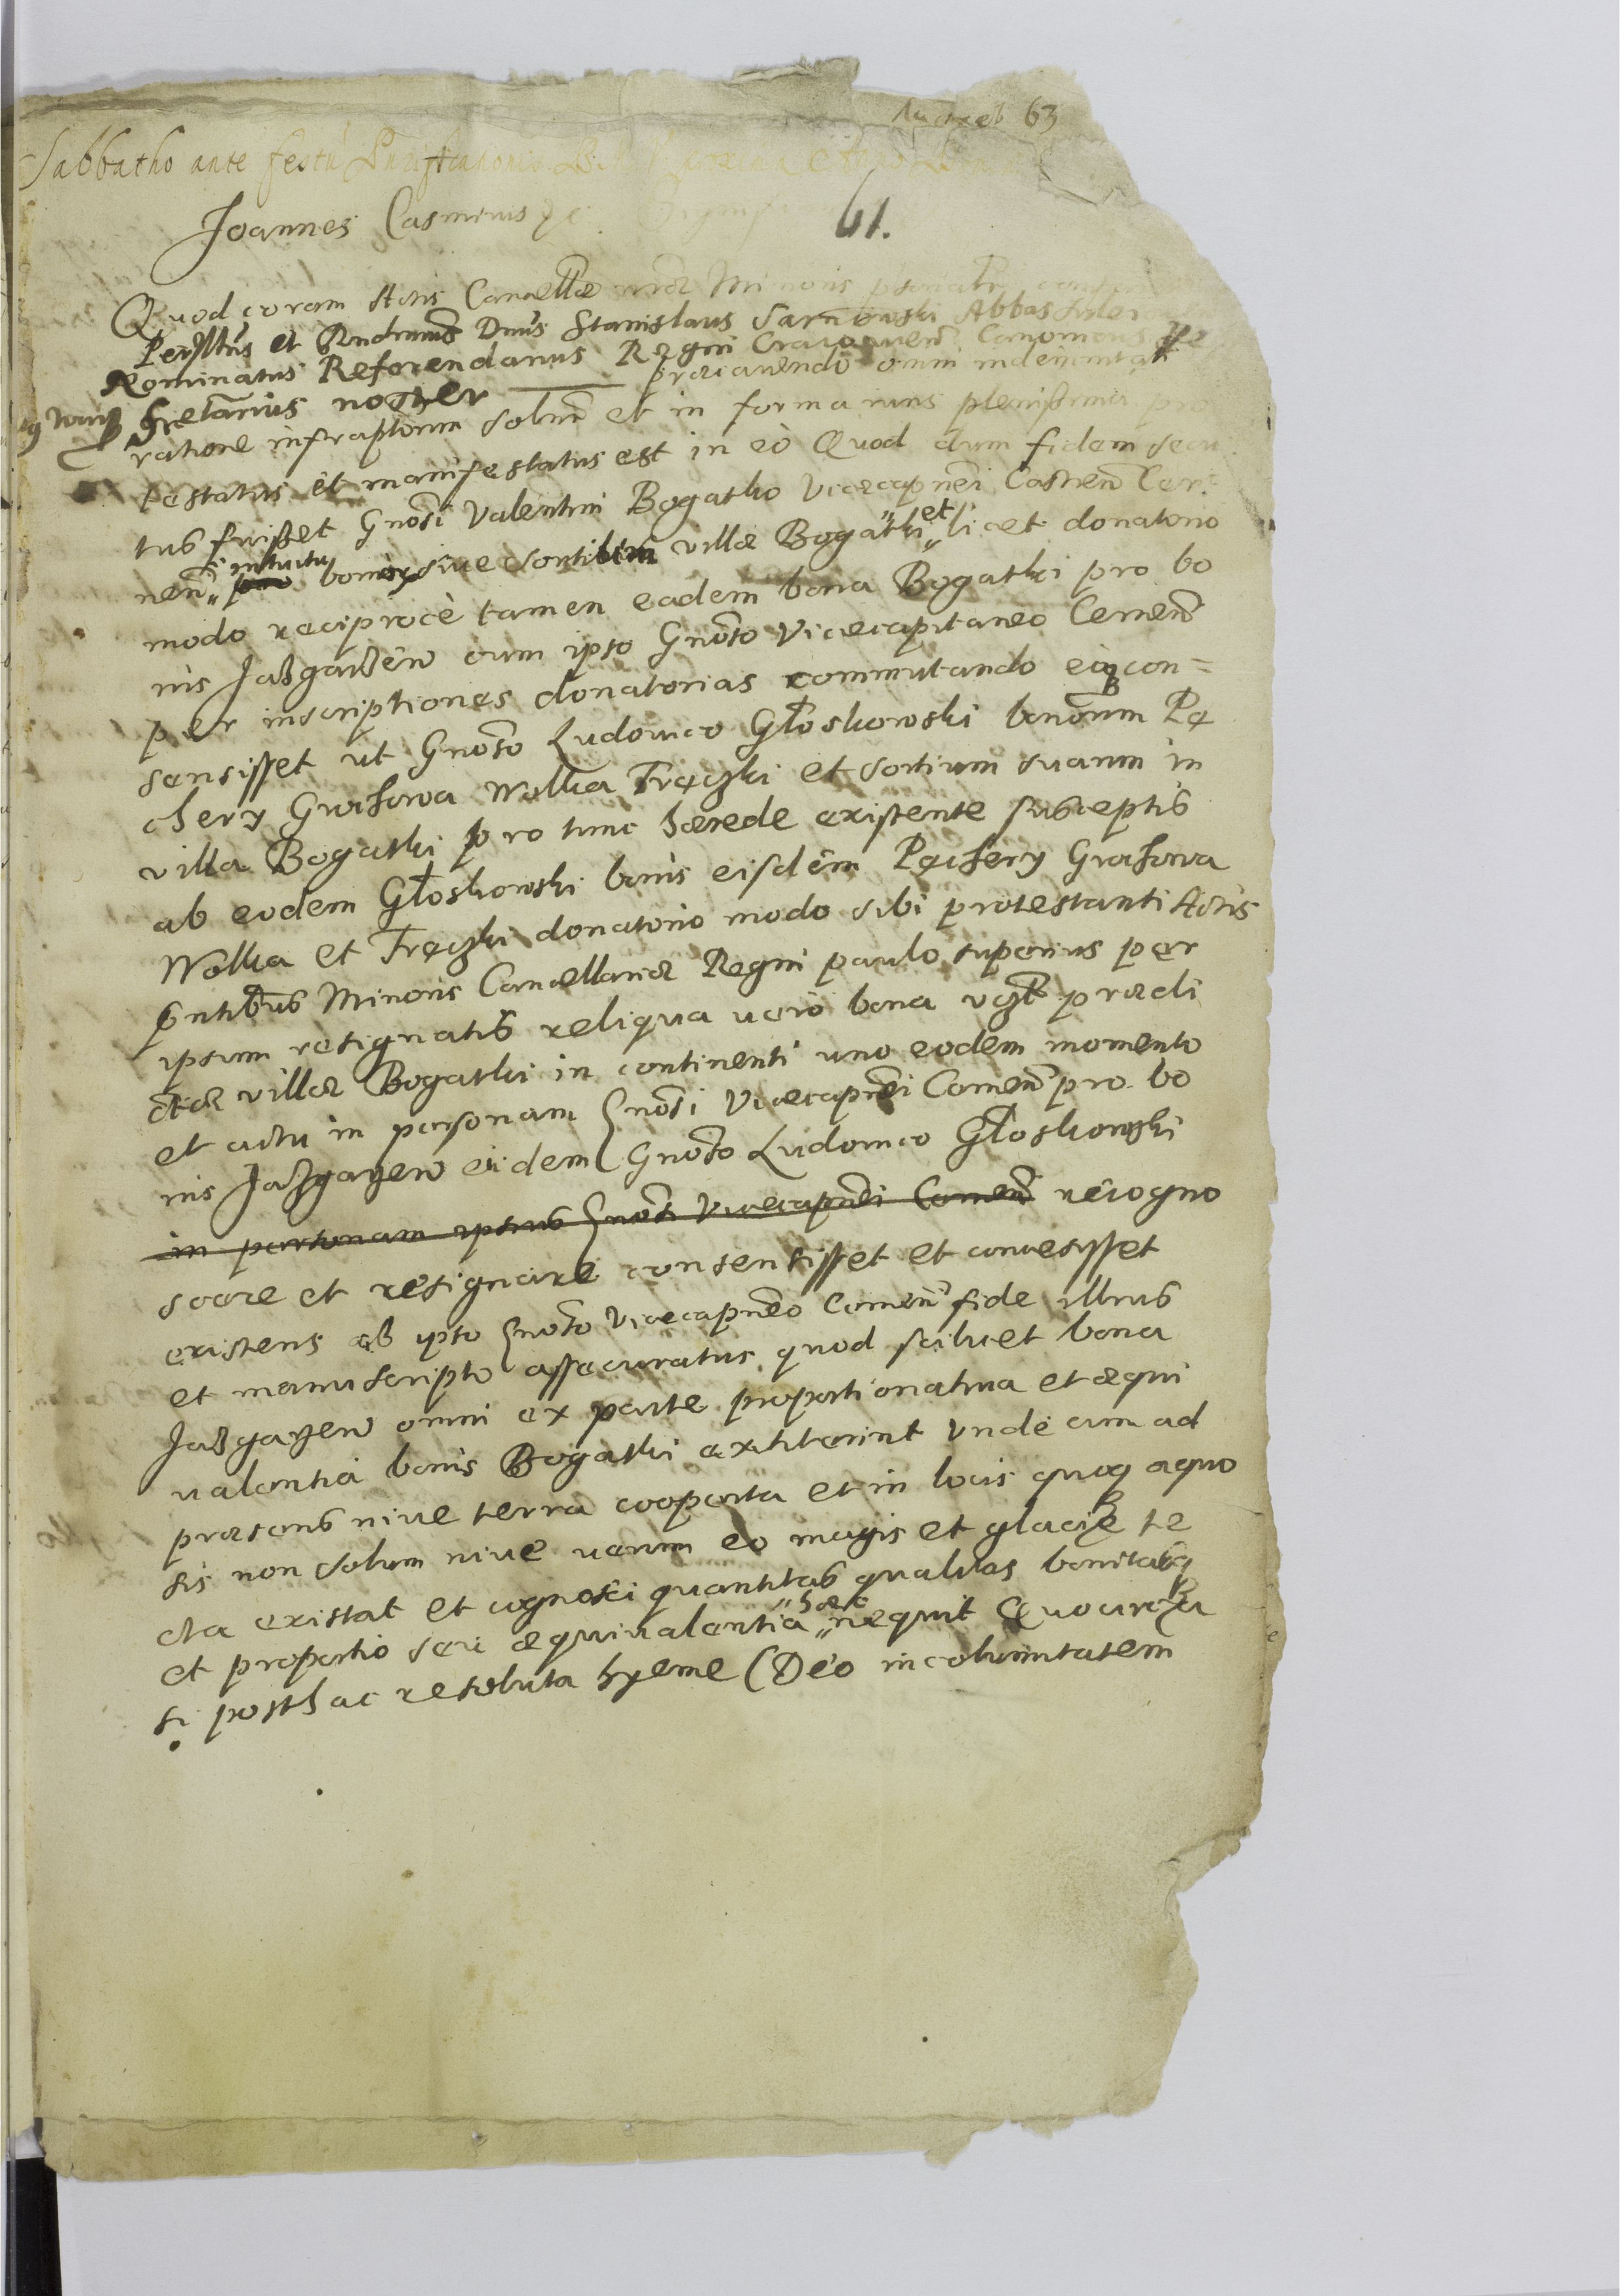 63
Sabbatho ante festũ Purificationis B. M.
Joannes Casimirus &c.
61.
Quod coram Actis Cancellae nrae Minoris psonaltr
Perylltris et Rndmus Dnus Stanislaus Sarnowski Abbas
Nominatus Referendarius Regni Cracovien Canonicus
Sretarius noster praecavendo omni indemnitati
ratione infraptorum solnr et in forma iuris plenissima pro
testatus et manifestatus est in eo Quod dum fidem secu
tus fuisset Gnosi Valentini Bogatko Vicecapnei Castren Cer
nen intuitu bonorum siue Sortium villae Bogatki et licet donatorio
modo reciprocè tamen eadem bona Bogatki pro bo
nis Jazgarzew cum ipso Gnoso Vicecapitaneo Cernen
per inscriptiones donatorias commutando eoq con=
sensisset ut Gnoso Ludovico Głoskowski bonorum Pę
chery Grochowa Wolka Frączki et sortium suarum in
villa Bogatki pro tunc haerede existente susceptis
ab eodem Głoskowski bonis eisdem Pęchery Grochowa
Wolka et Frączki donatorio modo sibi protestanti Actis
pntibus Minoris Cancellariae Regni paulo superius per
ipsum resignatis reliqua uero bona vgt praedi
ctae villae Bogatki in continenti uno eodem momento
et actu in personam Gnosi Vicecapnei Cernen pro bo
nis Jazgarzew eidem Gnoso Ludovico Głoskowski
in personam ipsius Gnosi Vicecapnei Cernen recogno
scere et resignare consensisset et concessysset
existens ab ipso Gnoso Vicecapneo Cernen fide illius
et manuscripto assecuratus quod scilicet bona
Jazgarzew omni ex parte proportionativa et aequi
valentia bonis Bogatki extiterint Vnde cum ad
praesens niue terra cooperta et in locis quoq aquo
sis non solum niue verum eo magis et glacie te
cta existat et cognosci quantitas qualitas bonitasq
et proportio seu aequivalentia haec nequit Quocirca
si posthac resoluta hyeme (Deo incolumitatem